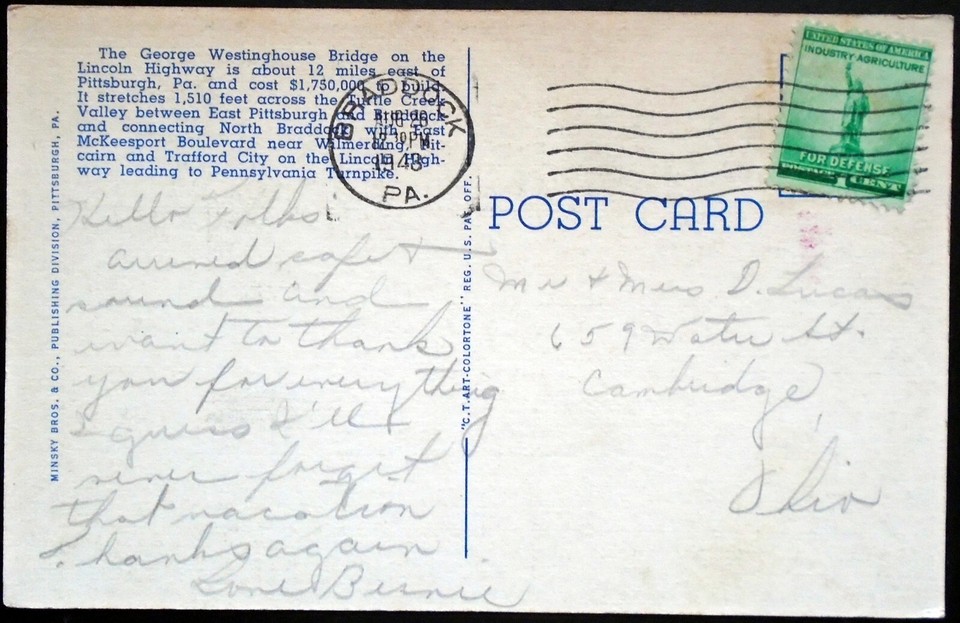 The George Westinghouse Bridge on the
Lincoln Highway is about 12 miles east of
Pittsburgh, Pa. and cost $1,750,000 to build.
It stretches 1,510 feet across the Turtle Creek
Valley between East Pittsburgh and Braddock
and connecting North Braddock with East
McKeesport Boulevard near Wilmerding, Pit-
cairn and Trafford City on the Lincoln High-
way leading to Pennsylvania Turnpike.
MINSKY BROS. & CO., PUBLISHING DIVISION, PITTSBURGH, PA.
Hello Folks
arrived safe +
sound and
want to thank
you for everything
I guess I'll
never forget
that vacation
Thanks again
Love Bernie
"C.T. ART-COLORTONE" REG. U.S. PAT. OFF.
BRADDOCK
AUG 20
PM
1948
PA.
UNITED STATES OF AMERICA
INDUSTRY-AGRICULTURE
FOR DEFENSE
POSTAGE 1 CENT
POST CARD
Mr + Mrs D. Lucas
659 Water St.
Cambridge,
Ohio